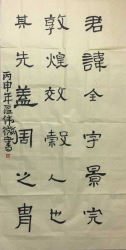 君讳全字景完
敦煌效穀人也
其先盖周之胄
丙申年
書